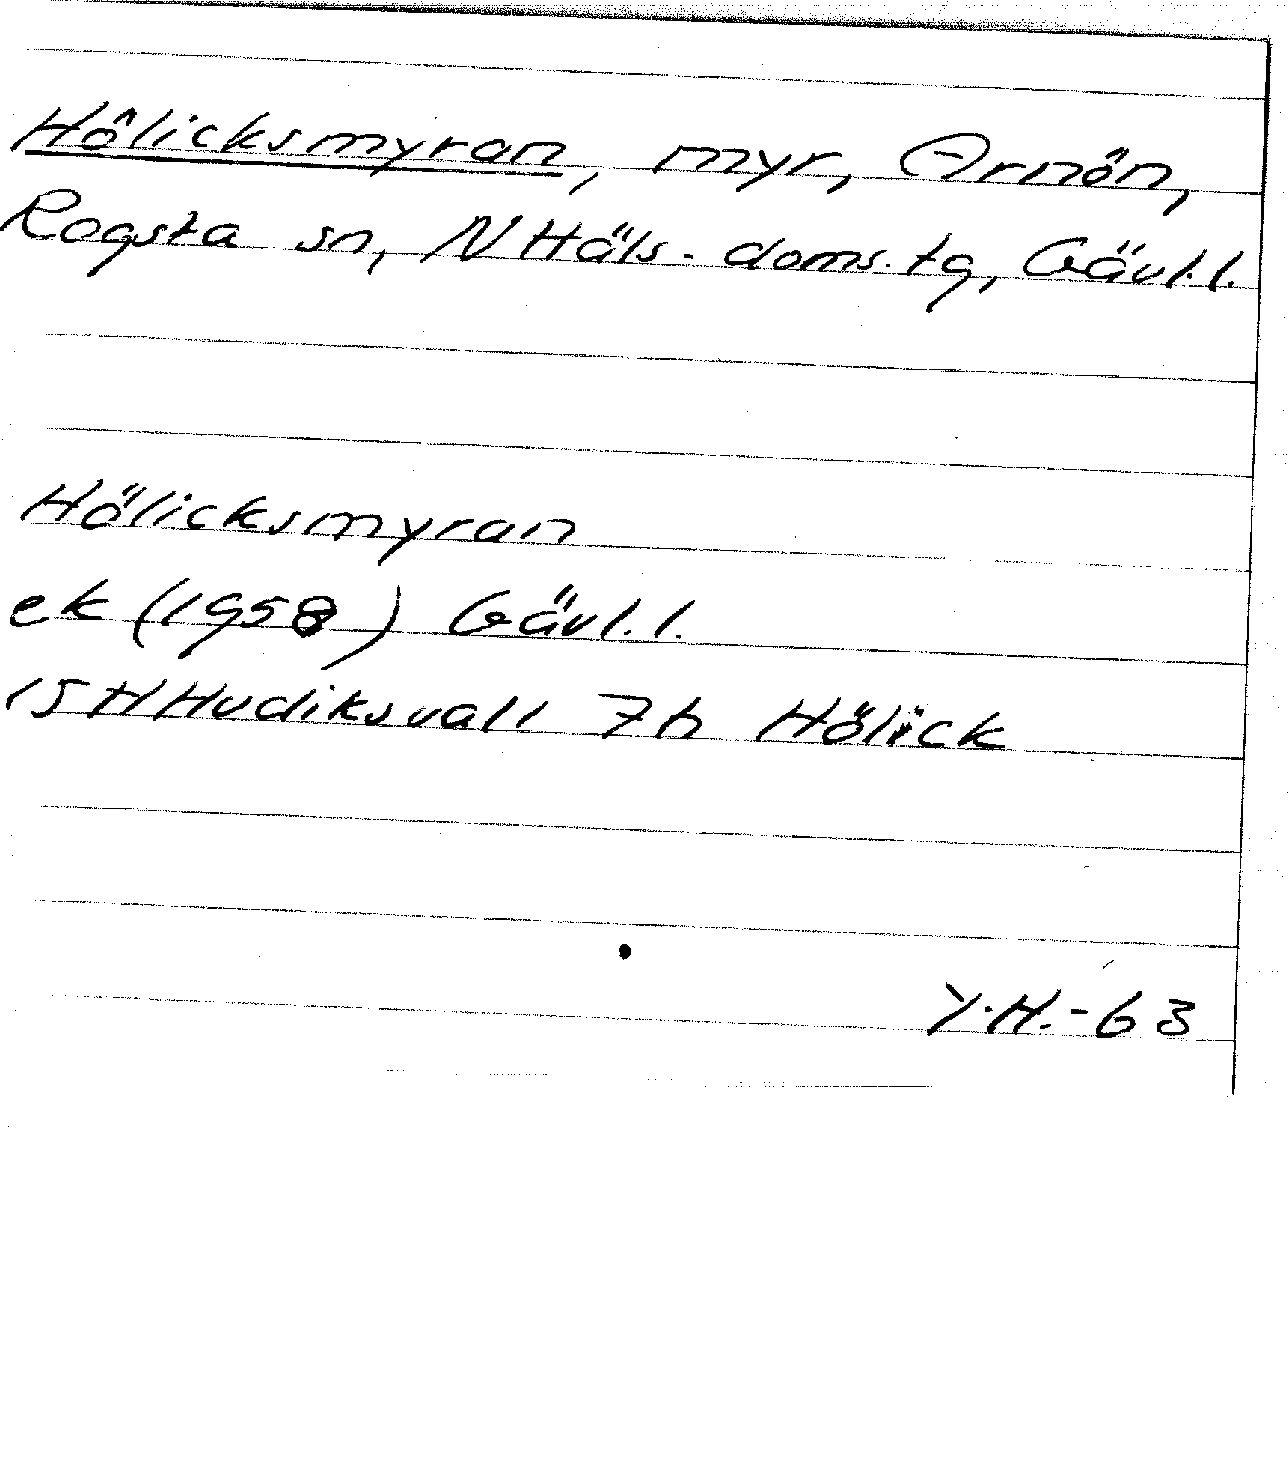 Hölicksmyran, myr, Arnön,
Rogsta sn, N Häls. doms. tg, Gävl. l.
Hölicksmyran
ek (1958) Gävl. l.
15 H Hudiksvall 7h Hölick
Y.H.-63